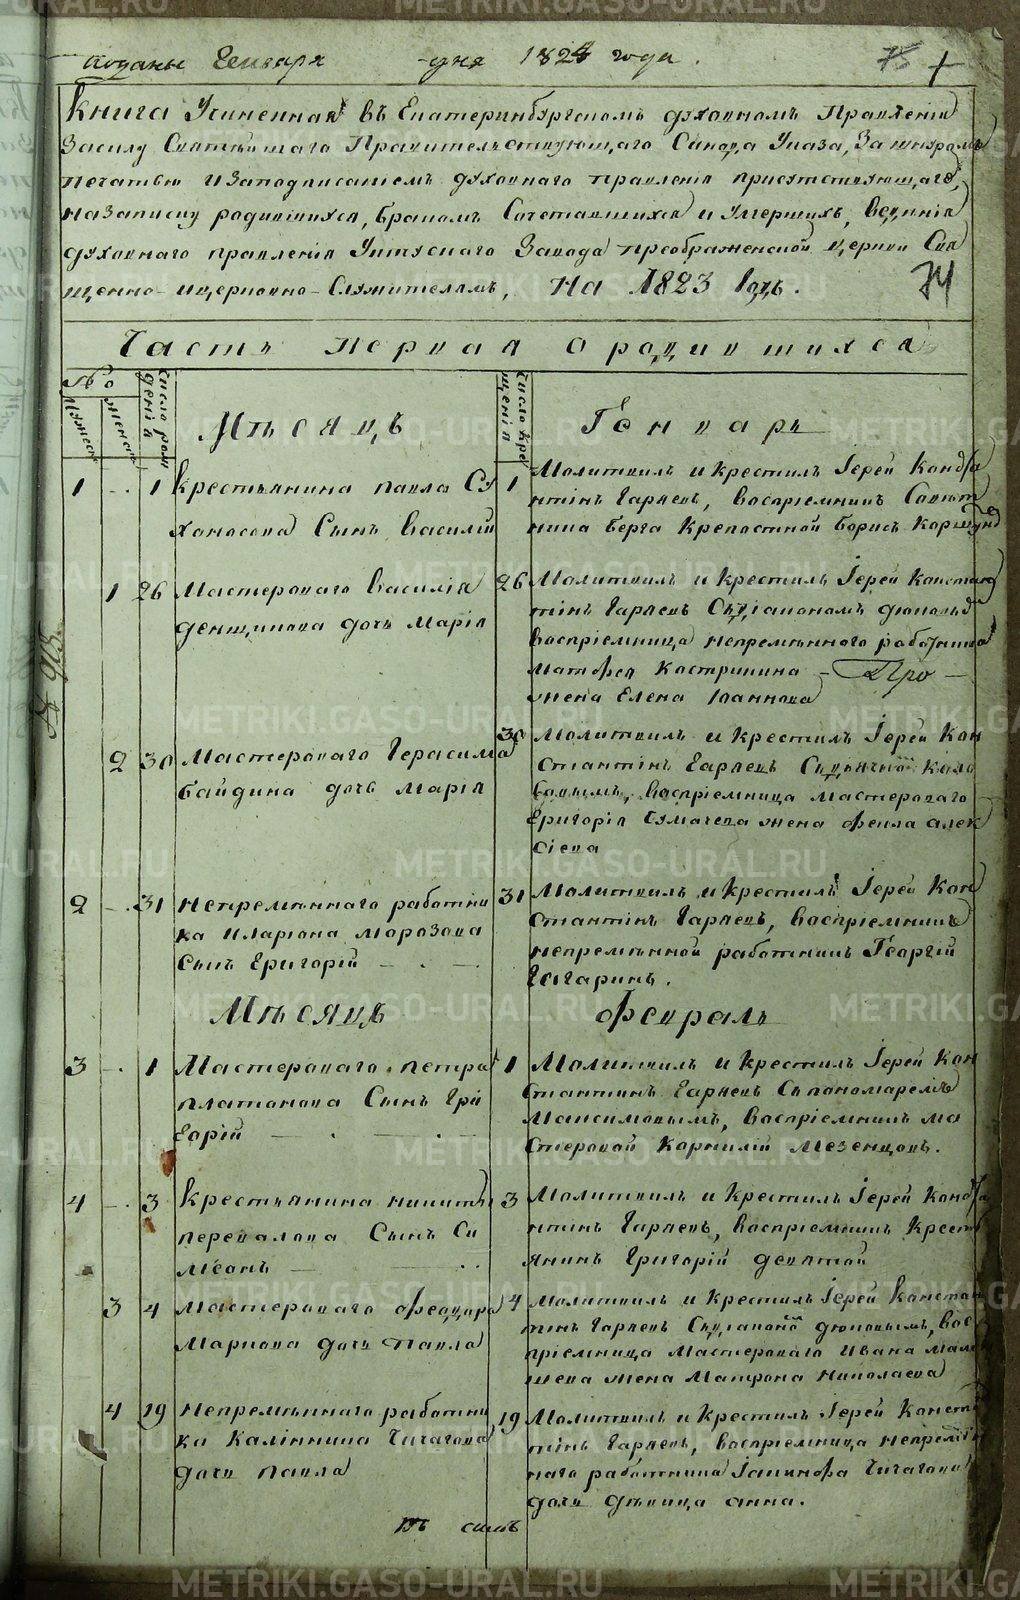 поданы Генваря дня 1824 года.
75
Книга Учиненная въ Екатеринбургскомъ духовномъ Правленiи
Засилу Святѣйшаго Правительствующаго Синода Указа, За шнуромъ
печатью и Заподписанiемъ духовнаго правленiя присутствующаго,
на записку родившихся, бракомъ Сочетавшихся и Умершихъ, вѣденiя
духовнаго правленiя Уктускаго Завода преображенской церкви Свя
щенно-ицерковно-Служителямъ, На 1823 Годъ.
74
Часть Первая О родившихся
№
Мужеск
Женск
Число рож
денiя
Мѣсяцъ
Число кре
щенiя
Генварь
1 1 Крестьянина павла Су
хоносова Сынъ Василiй
1 Молитвилъ и крестилъ Iерей Конста
нтiнъ Гаряевъ, Воспрiемникъ Совѣт
ника Берга Крепостной Борисъ
1 26 Мастероваго Василiя
денщикова дочь Марiя
26 Молитвилъ и крестилъ Iерей Констан
тiнъ Гаряевъ Съдiакономъ
воспрiемница непремѣннаго работника
матфея Костринина Про
жена Елена Iоаннова
2 30 Мастероваго Герасима
байдина дочь Марiя
30 Молитвилъ и крестилъ Iерей Кон
стантiнъ Гаряевъ
воспрiемница мастероваго
Григорiя Сумачева жена Фекла алек
сiева
2 31 непремѣннаго работни
ка Иларiона морозова
Сынъ Григорiй
31 Молитвилъ и крестилъ Iерей Кон
стантiнъ Гаряевъ, воспрiемникъ
непремѣнной работникъ Георгiй
Гагаринъ.
Мѣсяцъ Февраль
3 1 Мастероваго петра
платонова Сынъ Гри
горiй
1 Молитвилъ и крестилъ Iерей Кон
стантинъ Гаряевъ Съпономаремъ
Максимовымъ, воспрiемникъ ма
стеровой Корнилiй Мезенцовъ.
4 3 Крестьянина никиты
перевалова Сынъ Си
мѣонъ
3 Молитвилъ и крестилъ Iерей Конста
нтiнъ Гаряевъ, воспрiемникъ Кресть
янинъ Григорiй девятой
3 4 мастероваго феодора
Маркова дочь павла
4 Молитвилъ и крестилъ Iерей констан
тiнъ Гаряевъ Съдiакономъ дюковымъ, вос
прiемница Мастероваго Ивана мал
шева жена Матрона николаева
4 19 непремѣннаго работни
ка Калинника Чичагова
дочь павла
19 Молитвилъ и крестилъ Iерей Конста
тiнъ Гаряевъ, воспрiемница непремѣн
наго работника Iакинфа Чичагова
дочь дѣвица анна.
METRIKI.GASO-URAL.RU